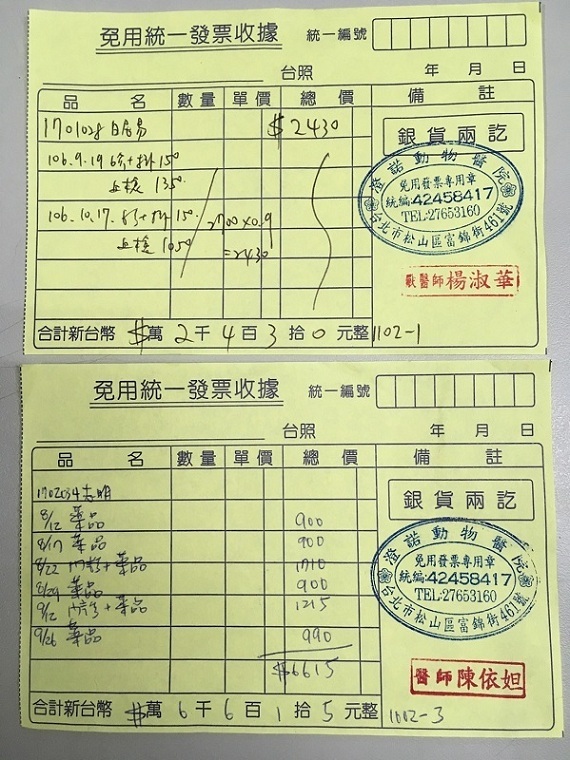 免用統一發票收據 統一編號
台照 年 月 日
品 名 數量 單價 總 價 備 註
1701028 白居易 $2430
銀貨兩訖
106.9.19 +掛150
血檢 1350
106.10.17. +掛150.
血檢 1050
2700×0.9
=2430
澄諾動物醫院
免用發票專用章
統編:42458417
TEL:27653160
台北市松山區富錦街461號
獸醫師 楊淑華
合計新台幣 $萬 2千 4百 3拾 0元整 1102-1
免用統一發票收據 統一編號
台照 年 月 日
品 名 數量 單價 總 價 備 註
1702034志明
銀貨兩訖
8/12 藥品 900
8/17 藥品 900
8/22 門診+藥品 1710
8/29 藥品 900
9/12 門診+藥品 1215
9/26 藥品 990
$6615
澄諾動物醫院
免用發票專用章
統編:42458417
TEL:27653160
台北市松山區富錦街461號
醫師 陳依妲
合計新台幣 $萬 6千 6百 1拾 5元整 1002-3